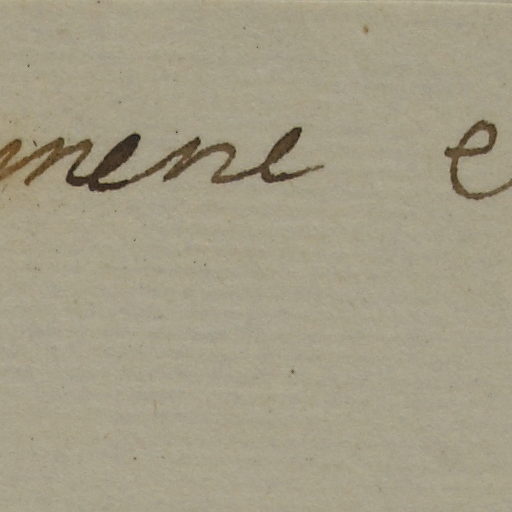 mene e